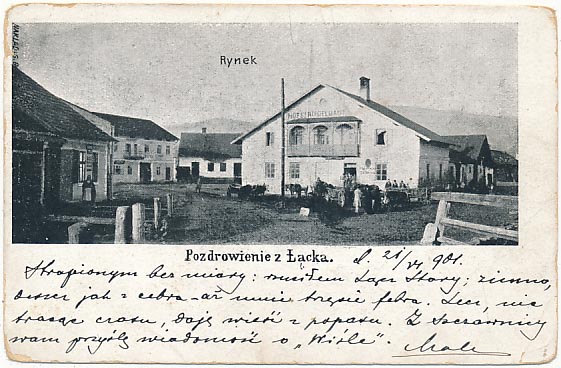 Rynek
Pozdrowienie z Łącka. d. 21/VI 901.
Strapionym bez miary: rzuciłem Łącz Stary; zimno,
deszcz jak z cebra - aż mnie trzęsie febra. Lecz, nie
tracąc czasu, daję wieść z popasu. Z Szczawnicy
wam przyślę wiadomość o "Wiśle".